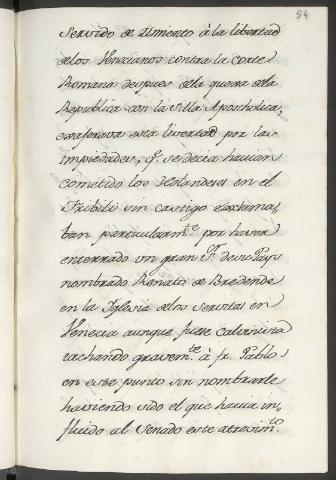 54
servido de Dmiento à la libertad
de los Venecianos contra la corte
Romana despues de la guerra de la
Republica con la silla Apostholica,
exasperava esta livertad por las
impiedades, q.e se decia havian
cometido los Holandeses en el
Fribili sin castigo exclama,
ban particularm.te por haver
enterrado un gran S.r de su Pays
nombrado Renato de Brederode
en la Iglesia de los servitas en
Venecia aunque fuese calvinista
tachando gravem.te à fr. Pablo
en este punto sin nombrarle
haviendo sido el que havia in,
fluido al Senado este atrevim.to